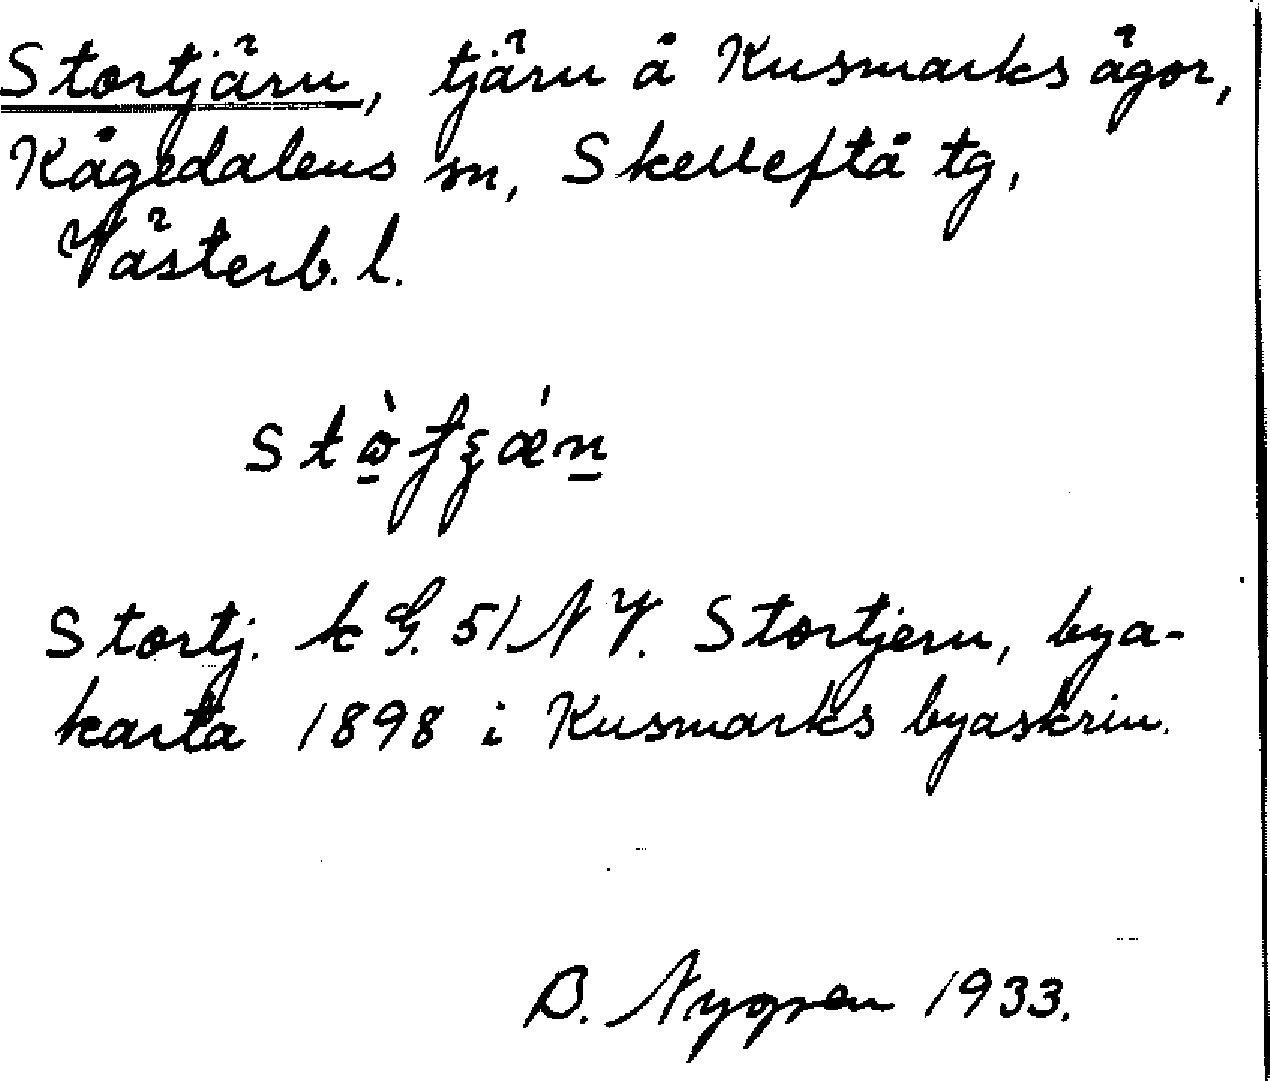 Stortjärn, tjärn å Kusmarks ägor,
Kågedalens sn, Skellefteå tg,
Västerb. l.
Stortj. k G. 51 NV. Stortjern, bya-
karta 1898 i Kusmarks byaskrin.
B. Nygren 1933.